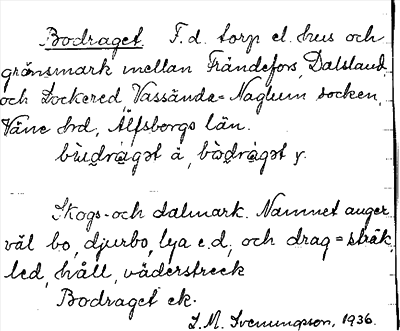 Bodraget. F. d. torp el. hus och
gränsmark mellan Frändefors, Dalsland
och Lockered, Vassända-Naglum socken,
Väne hrd, Älfsborgs län.
bùdràgət å, bòdràgət y.
Skogs- och dalmark. Namnet anger
väl bo, djurbo, lya e. d., och drag = stråk,
led, håll, väderstreck
Bodraget ek.
S. M. Svenungson, 1936.